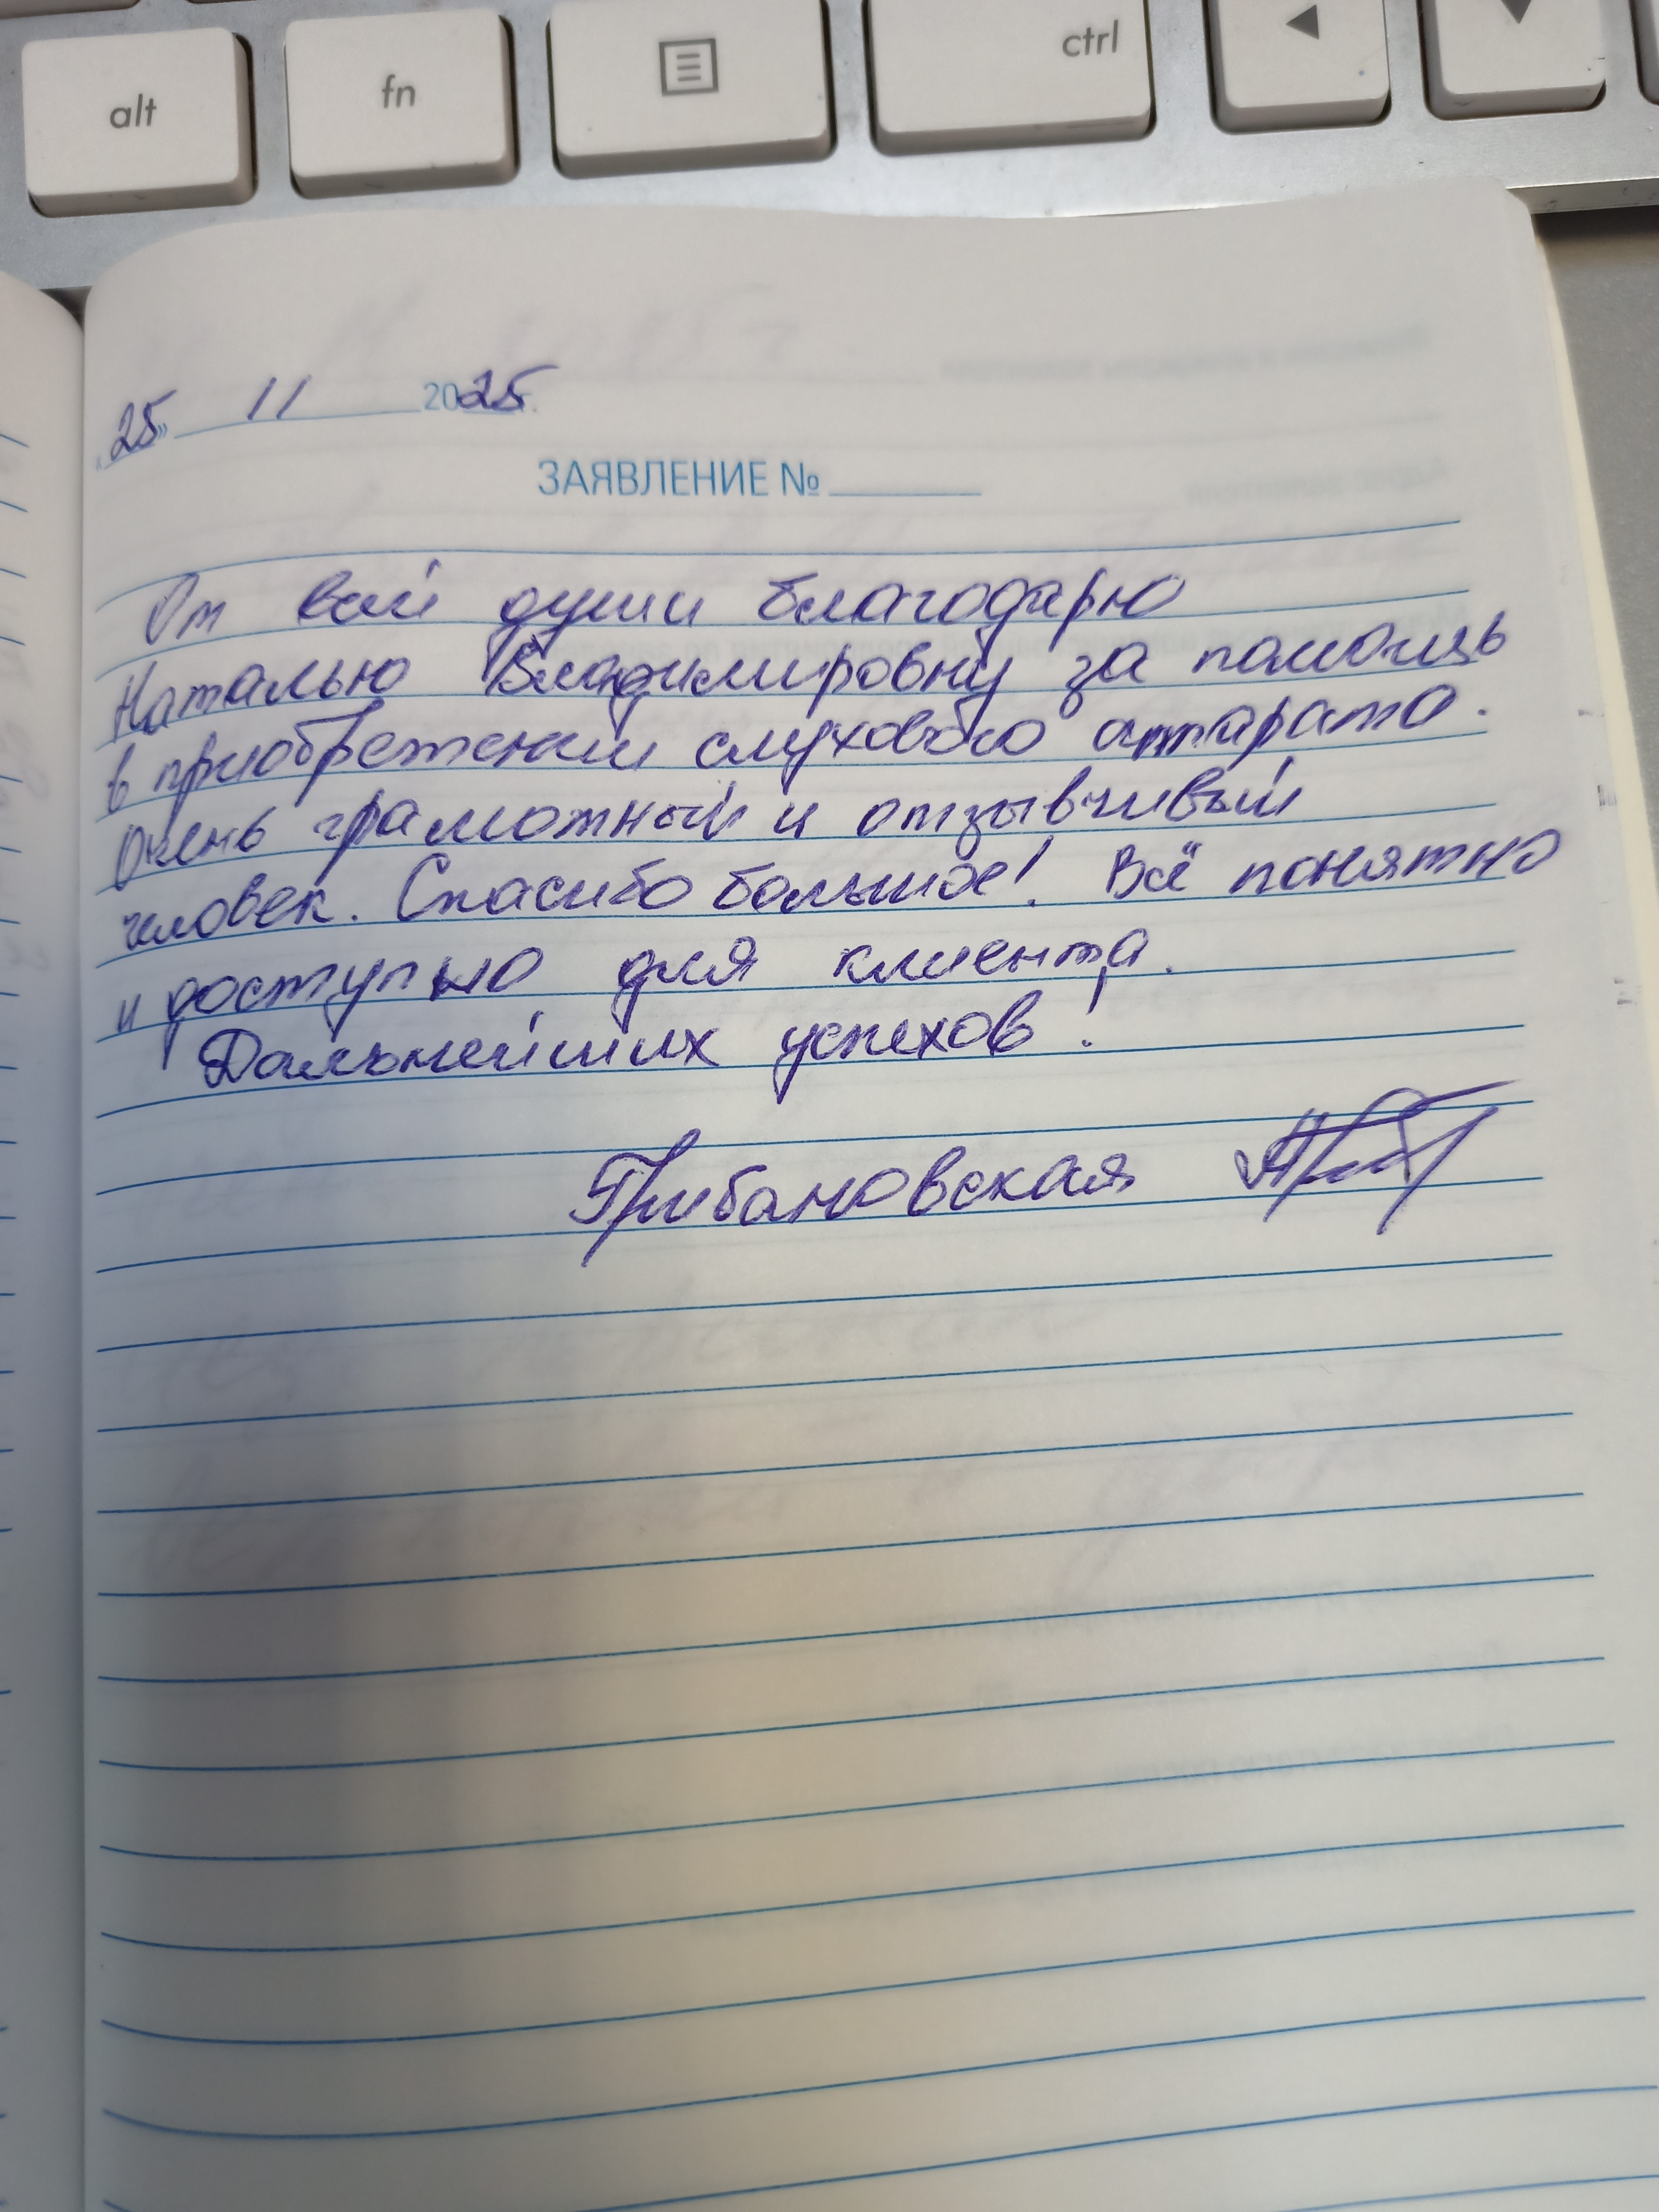 alt fn ctrl
«25» 11 2025г.
ЗАЯВЛЕНИЕ № ______
От всей души благодарю
Наталью Владимировну за помощь
в приобретении слухового аппарата.
Очень грамотный и отзывчивый
человек. Спасибо большое! Всё понятно
и доступно для клиента.
Дальнейших успехов!
Грибановская